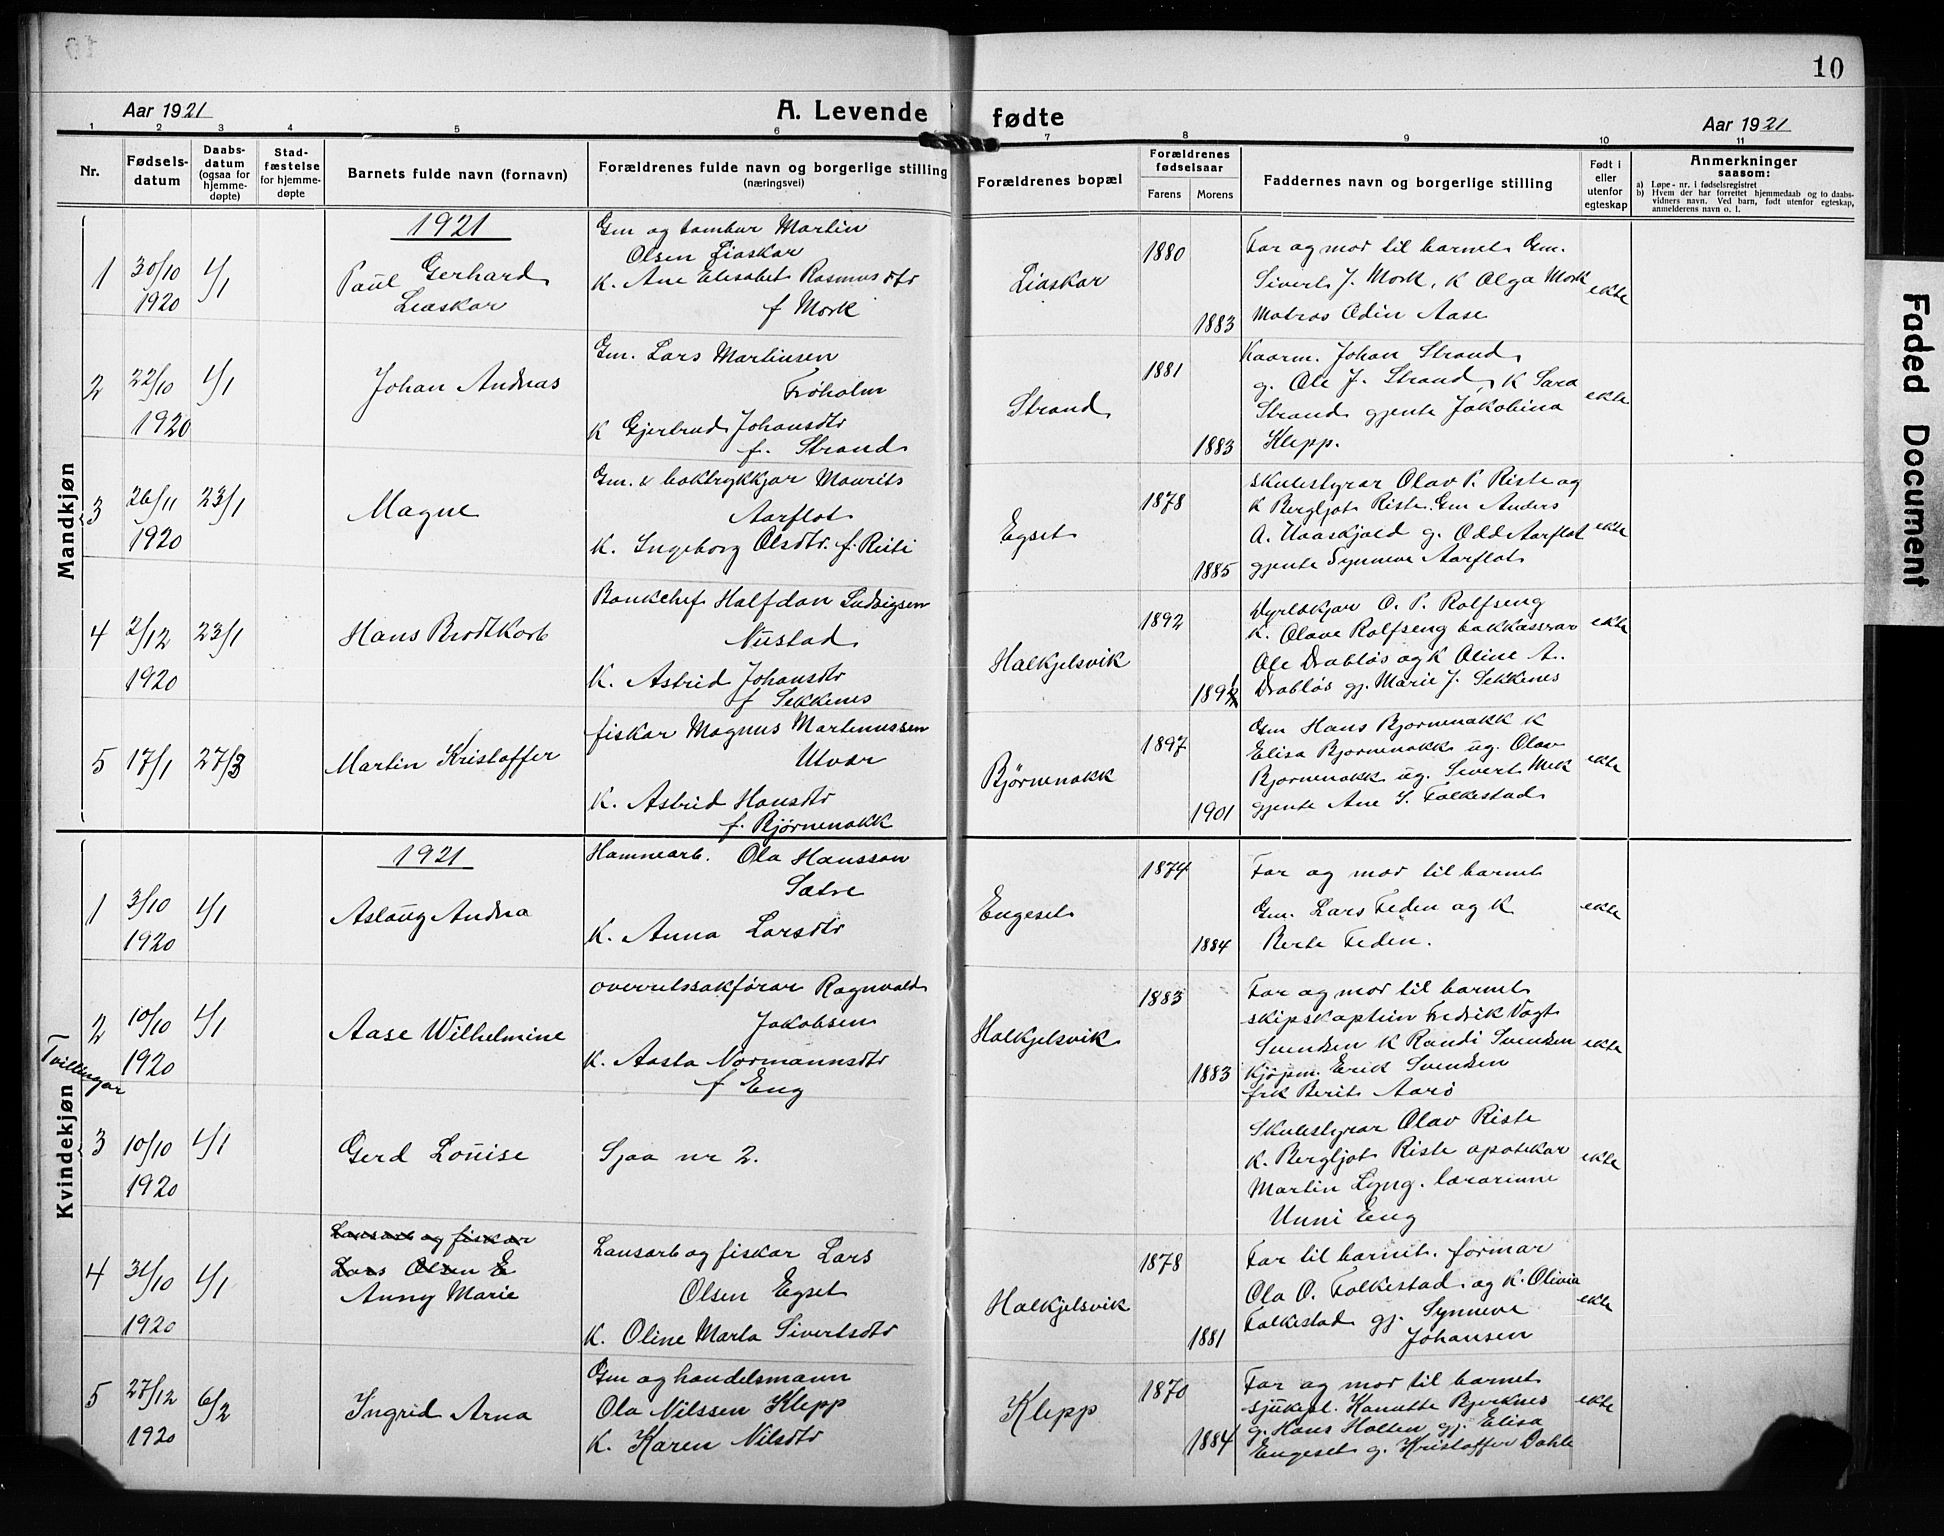 10
Aar 1921
A. Levende fødte
Aar 1921
1 2 3 4 5 6 7 8 9 10 11
Nr.
Fødsels-
datum
Daabs-
datum
(ogsaa for
hjemme-
døpte)
Stad-
fæstelse
for hjemme-
døpte
Barnets fulde navn (fornavn)
Forældrenes fulde navn og borgerlige stilling
(næringsvei)
Forældrenes bopæl
Forældrenes
fødselsaar
Farens Morens
Faddernes navn og borgerlige stilling
Født i
eller
utenfor
egteskap
Anmerkninger
saasom:
a) Løpe-nr. i fødselsregistret
b) Hvem der har forrettet hjemmedaab og to daabs-
vidners navn. Ved barn, født utenfor egteskap,
anmelderens navn o. l.
Mandkjøn
1921
1 30/10 1920 1/1
Paul Gerhard
Liaskar
Gm og tambur Martin
Olsen Liaskar
K. Ane Elisabet Rasmusdtr
f Mork
Liaskar
1880
1883
Far og mor til barnet Gm.
Sivert J. Mork, K Olga Mork
Matros Odin Aase
ekte
2 22/10 1920 1/1
Johan Andreas
Gm. Lars Martinsen
Frøholm
K Gjertrud Johansdtr
f. Strand
Strand
1881
1883
Kaarm. Johan Strand
g. Ole J. Strand, K Sara
Strand gjente Jakobina
Klepp.
ekte
3 26/11 1920 23/1
Magne
Gm. & boktrykkjar Maurits
Aarflot
K. Ingeborg Olsdtr. f. Risti
Egset
1878
1885
Skulestyrar Olav P. Riste og
K Bergljot Riste. Gm Anders
A. Vaaskjold g. Odd Aarflot
gjente Synneve Aarflot
ekte
4 2/12 1920 23/1
Hans Brodtkorb
Bankchef Halfdan Ludvigsen
Nustad
K. Astrid Johansdtr
f Sekkenes
Halkjelsvik
1892
Dyrlækjar O. P. Rolfseng
K. Olave Rolfseng bakkasserar
Ole Drabløs og K Oline A.
Drabløs gj. Marie J. Sekkenes
ekte
5 17/1 27/3
Martin Kristoffer
fiskar Magnus Martinussen
Utvær
K. Astrid Hansdtr
f. Bjørnenakk
Bjørnenakk
1897
1901
Gm Hans Bjørnenakk K
Elisa Bjørnenakk ug. Olav
Bjørnenakk ug. Sivert Mek
gjente Ane S. Folkestad
ekte
Kvindekjøn
1921
1 3/10 1920 1/1
Aslaug Andrea
Hamnearb. Ola Hansson
Sætre
K. Anna Larsdtr
Engeset
1874
1884
Far og mor til barnet
Gm. Lars Feden og K
Berte Feden.
ekte
Tvillingar
2 10/10 1920 1/1
Aase Wilhelmine
Overretssakførar Ragnvald
Jakobsen
K. Aasta Normannsdtr
f Eng
Halkjelsvik
1883
1883
Far og mor til barnet
skipskaptein Fredrik Vogt
Svendsen K Randi Svendsen
Kjøpm. Erik Svendsen
frk Berit Aarø
ekte
3 10/10 1920 1/1
Gerd Louise
Sjaa nr 2.
Skulestyrar Olav Riste
K. Bergljot Riste apotekar
Martin Lyng. lærarinne
Unni Eng
ekte
4 31/10 1920 1/1
Lausarb og fiskar
Lars Olsen E
Anny Marie
Lausarb og fiskar Lars
Olsen Egset
K. Oline Marta Sivertsdtr
Halkjelsvik
1878
1881
Far til barnet. formar
Ola O. Folkestad og K. Olivia
Folkestad gj. Synneve
Johansen
ekte
5 27/12 1920 6/2
Ingrid Arna
Gm og handelsmann
Ola Nilssen Klepp
K. Karen Nilsdtr
Klepp
1870
1884
Far og mor til barnet
sjukepl. Kanutte Bjerknes
g. Hans Holten gj. Elisa
Engeset g. Kristoffer Dahle
ekte
Faded Document